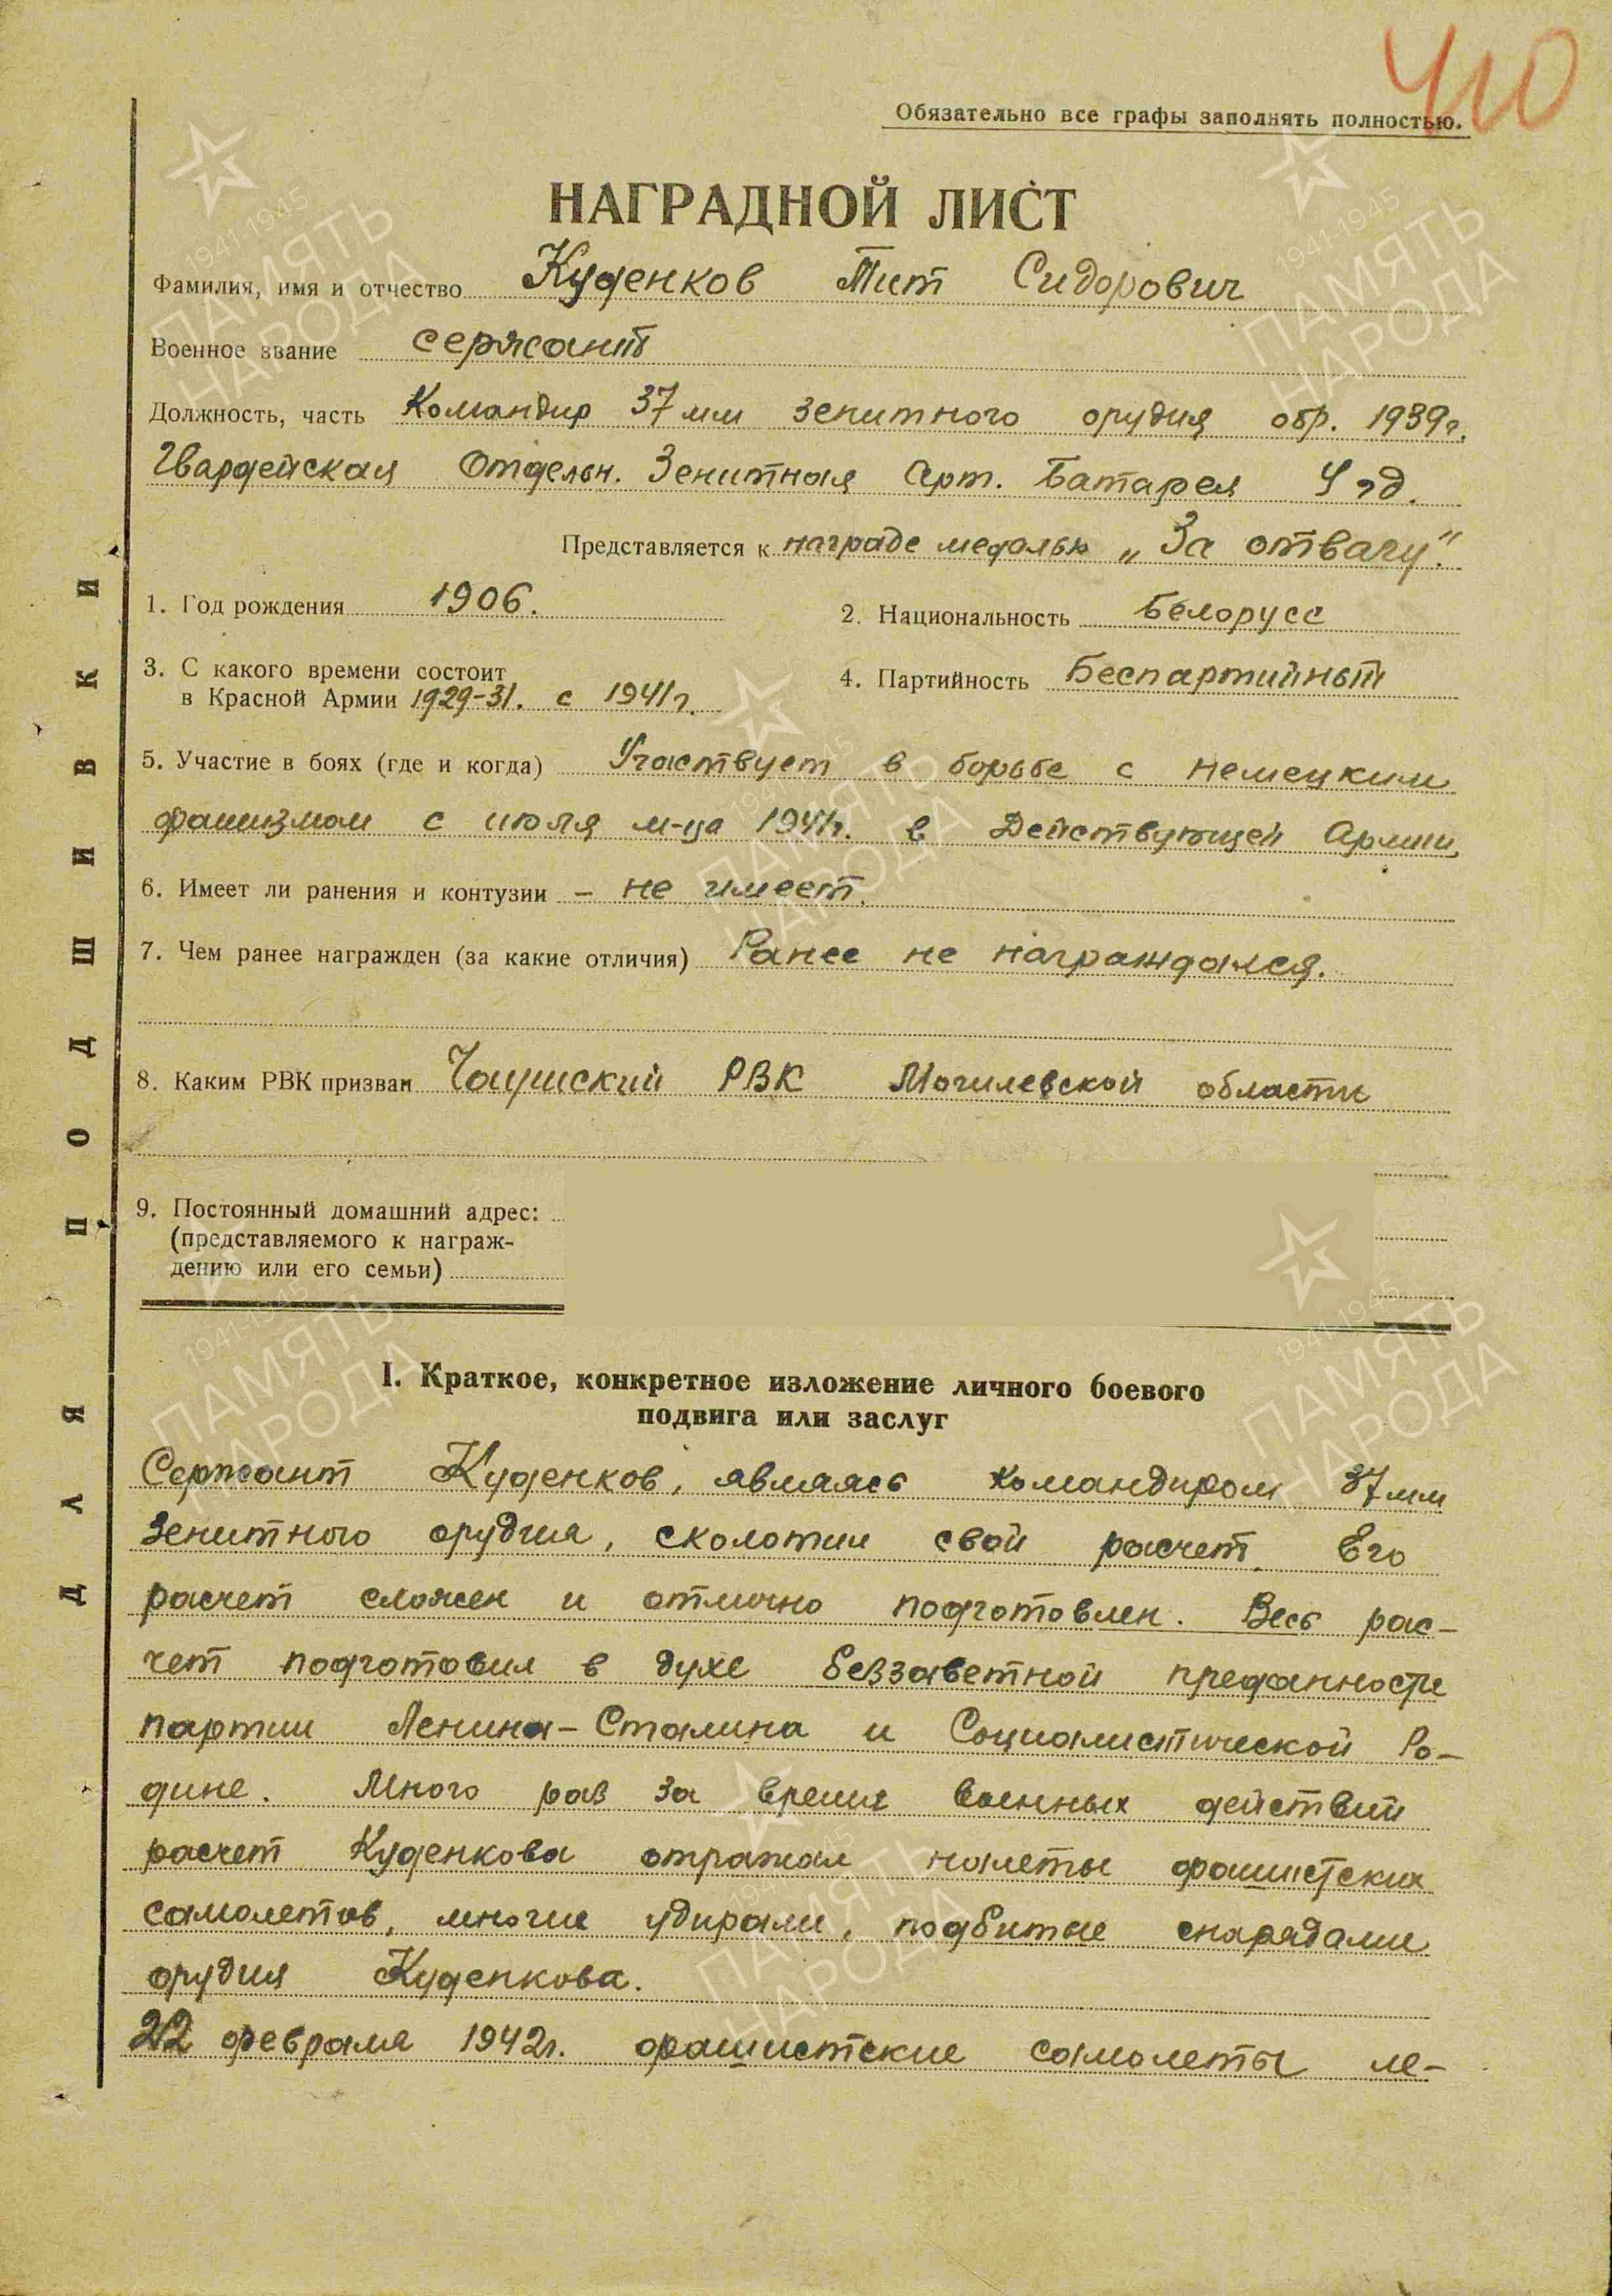 410
Обязательно все графы заполнять полностью.
НАГРАДНОЙ ЛИСТ
Фамилия, имя и отчество Куденков Тит Сидорович
Военное звание сержант
Должность, часть Командир 37 мм зенитного орудия обр. 1939г.
Гвардейская Отдельн. Зенитная Арт. Батарея 4 гд.
Представляется к награде медалью „За отвагу".
1. Год рождения 1906.
2. Национальность Белорусс
3. С какого времени состоит
в Красной Армии 1929-31. с 1941г.
4. Партийность Беспартийный
5. Участие в боях (где и когда) Участвует в борьбе с немецким
фашизмом с июля м-ца 1941г. в Действующей Армии.
6. Имеет ли ранения и контузии – не имеет.
7. Чем ранее награжден (за какие отличия) Ранее не награждался.
8. Каким РВК призван Чаушский РВК Могилевской области
9. Постоянный домашний адрес:
(представляемого к награж-
дению или его семьи)
I. Краткое, конкретное изложение личного боевого
подвига или заслуг
Сержант Куденков, являясь командиром 37мм
зенитного орудия, сколотил свой расчет. Его
расчет сложен и отлично подготовлен. Весь рас-
чет подготовил в духе беззаветной преданности
партии Ленина-Сталина и Социалистической Ро-
дине. Много раз за время военных действий
расчет Куденкова отражал налеты фашистских
самолетов, многие удирали, подбитые снарядами
орудия Куденкова.
22 февраля 1942г. фашистские самолеты ле-
ДЛЯ ПОДШИВКИ
1941-1945
ПАМЯТЬ
НАРОДА
1941-1945
ПАМЯТЬ
НАРОДА
1941-1945
ПАМЯТЬ
НАРОДА
1941-1945
ПАМЯТЬ
НАРОДА
1941-1945
ПАМЯТЬ
НАРОДА
1941-1945
ПАМЯТЬ
НАРОДА